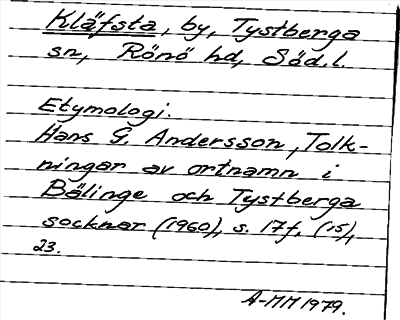 Kläfsta, by, Tystberga
sn, Rönö hd, Söd.l.
Etymologi.
Hans G. Andersson, Tolk-
ningar av ortnamn i
Bälinge och Tystberga
socknar (1960), s. 17f, (15),
23.
A-MM 1979.